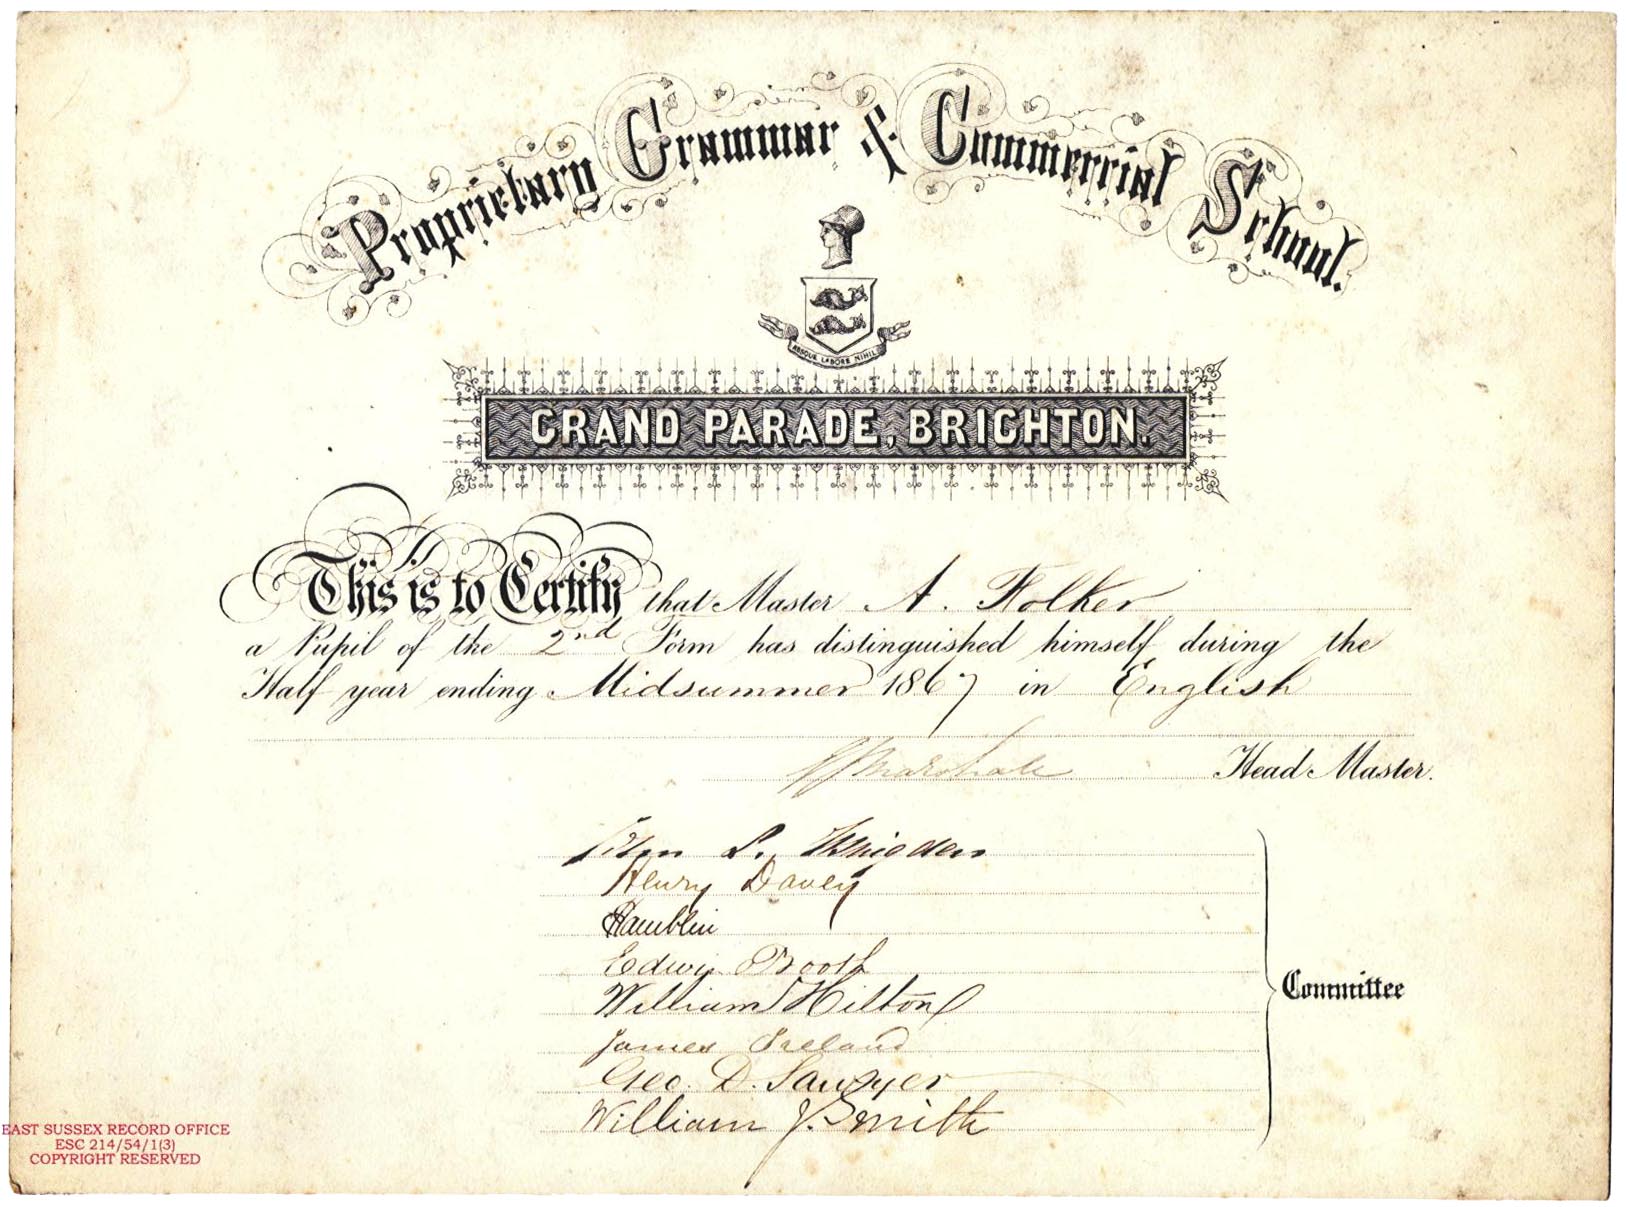 Proprietary Grammar & Commercial School.
ABSQUE LABORE NIHIL
GRAND PARADE, BRIGHTON.
This is to Certify that Master A. Folker
a Pupil of the 2nd Form has distinguished himself during the
Half year ending Midsummer 1867 in English
Marshall Head Master.
John L.
Henry Davey
Hamblin
Edwin Booth
William Hilton
Committee
James Ireland
Geo. D. Sawyer
William J. Smith
EAST SUSSEX RECORD OFFICE
ESC 214/54/1(3)
COPYRIGHT RESERVED